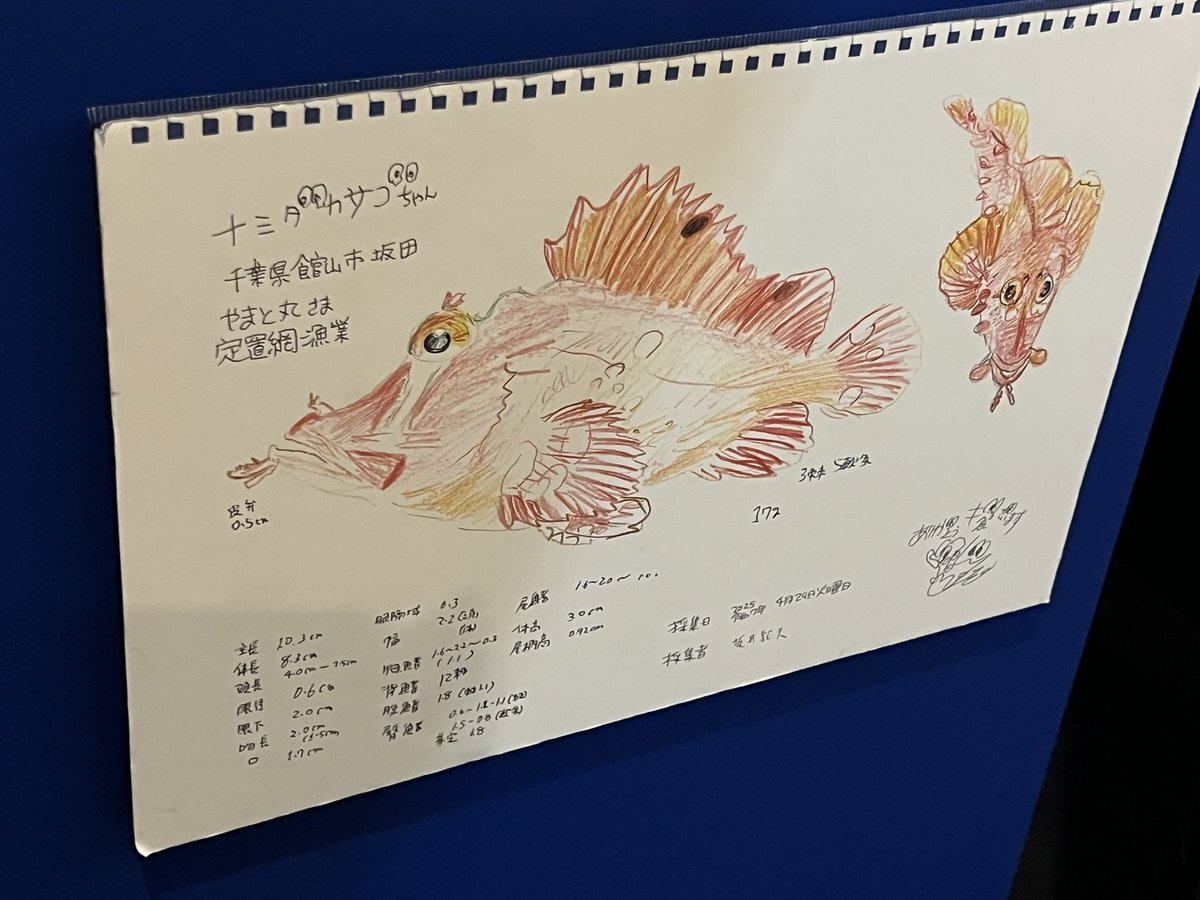 ナミダカサゴちゃん
千葉県館山市坂田
やまと丸さま
定置網漁業
皮弁
0.5cm
3棘 5軟条
172
全長 10.3cm
体長 8.3cm
頭長 4.0cm~3.5cm
眼径 0.6cm
眼下 2.0cm
吻長 2.0cm
(3.5cm)
口 1.7cm
眼隔域 0.3
幅 2.2(頭)
(体)
胸鰭 1.6~2.2~0.3
(1.1)
背鰭 12棘
腹鰭 1.8
臀鰭
1.5-0.8
1.8
尾鰭 1.6~2.0~1.0.
体高 3.0cm
尾柄高 0.92cm
採集日 2025年 4月29日火曜日
採集者